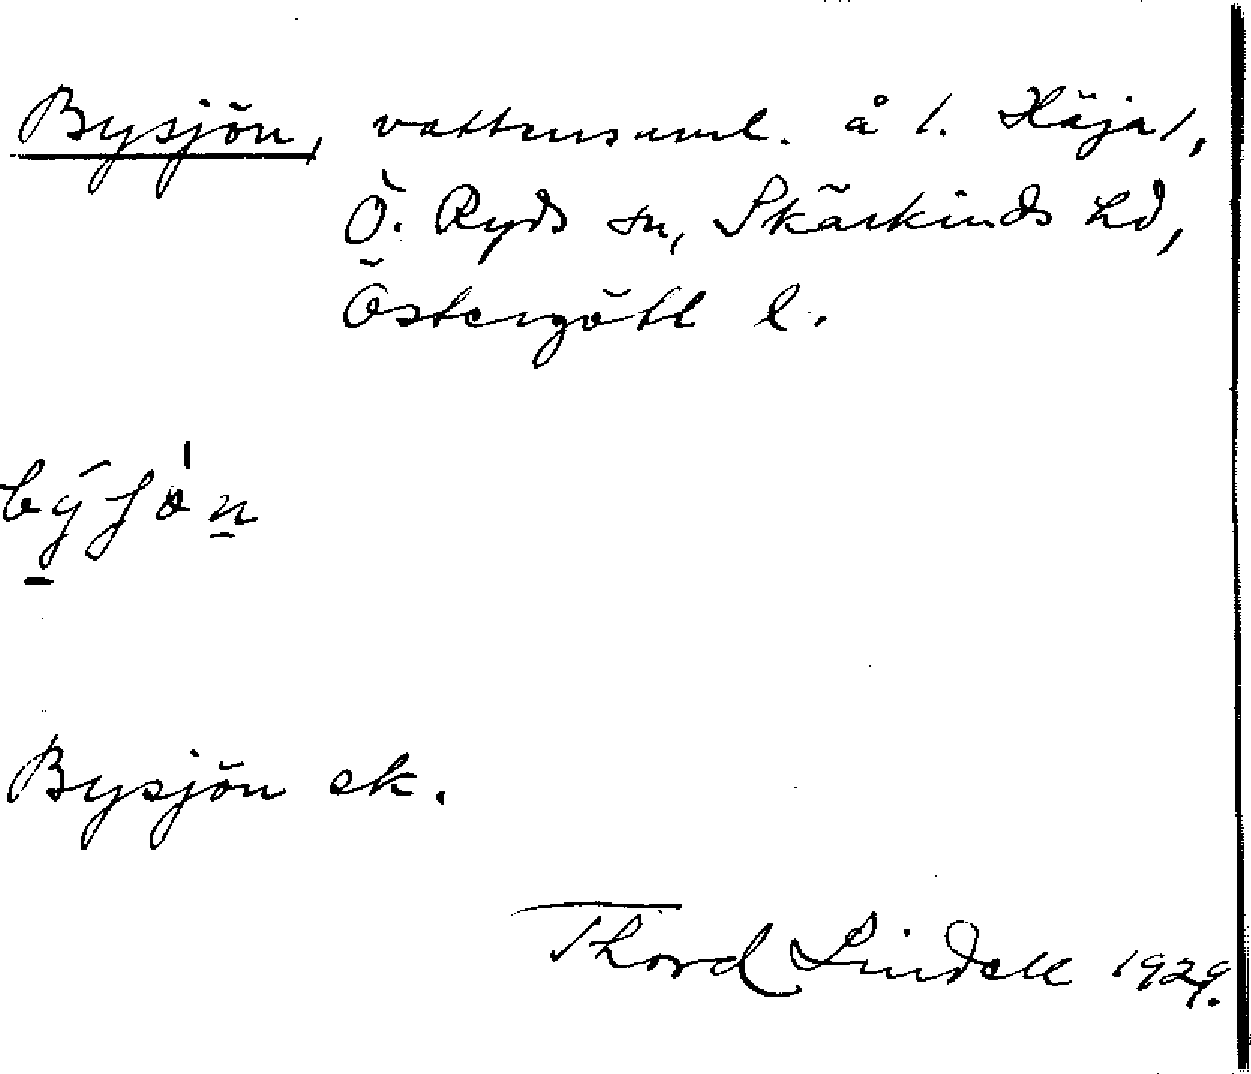 Bysjön, vattensaml. å 1. Häja 1,
Ö. Ryds sn, Skärkinds hd,
Östergötl l.
býʃö̀n
Bysjön ek.
Thord Lindell 1929.